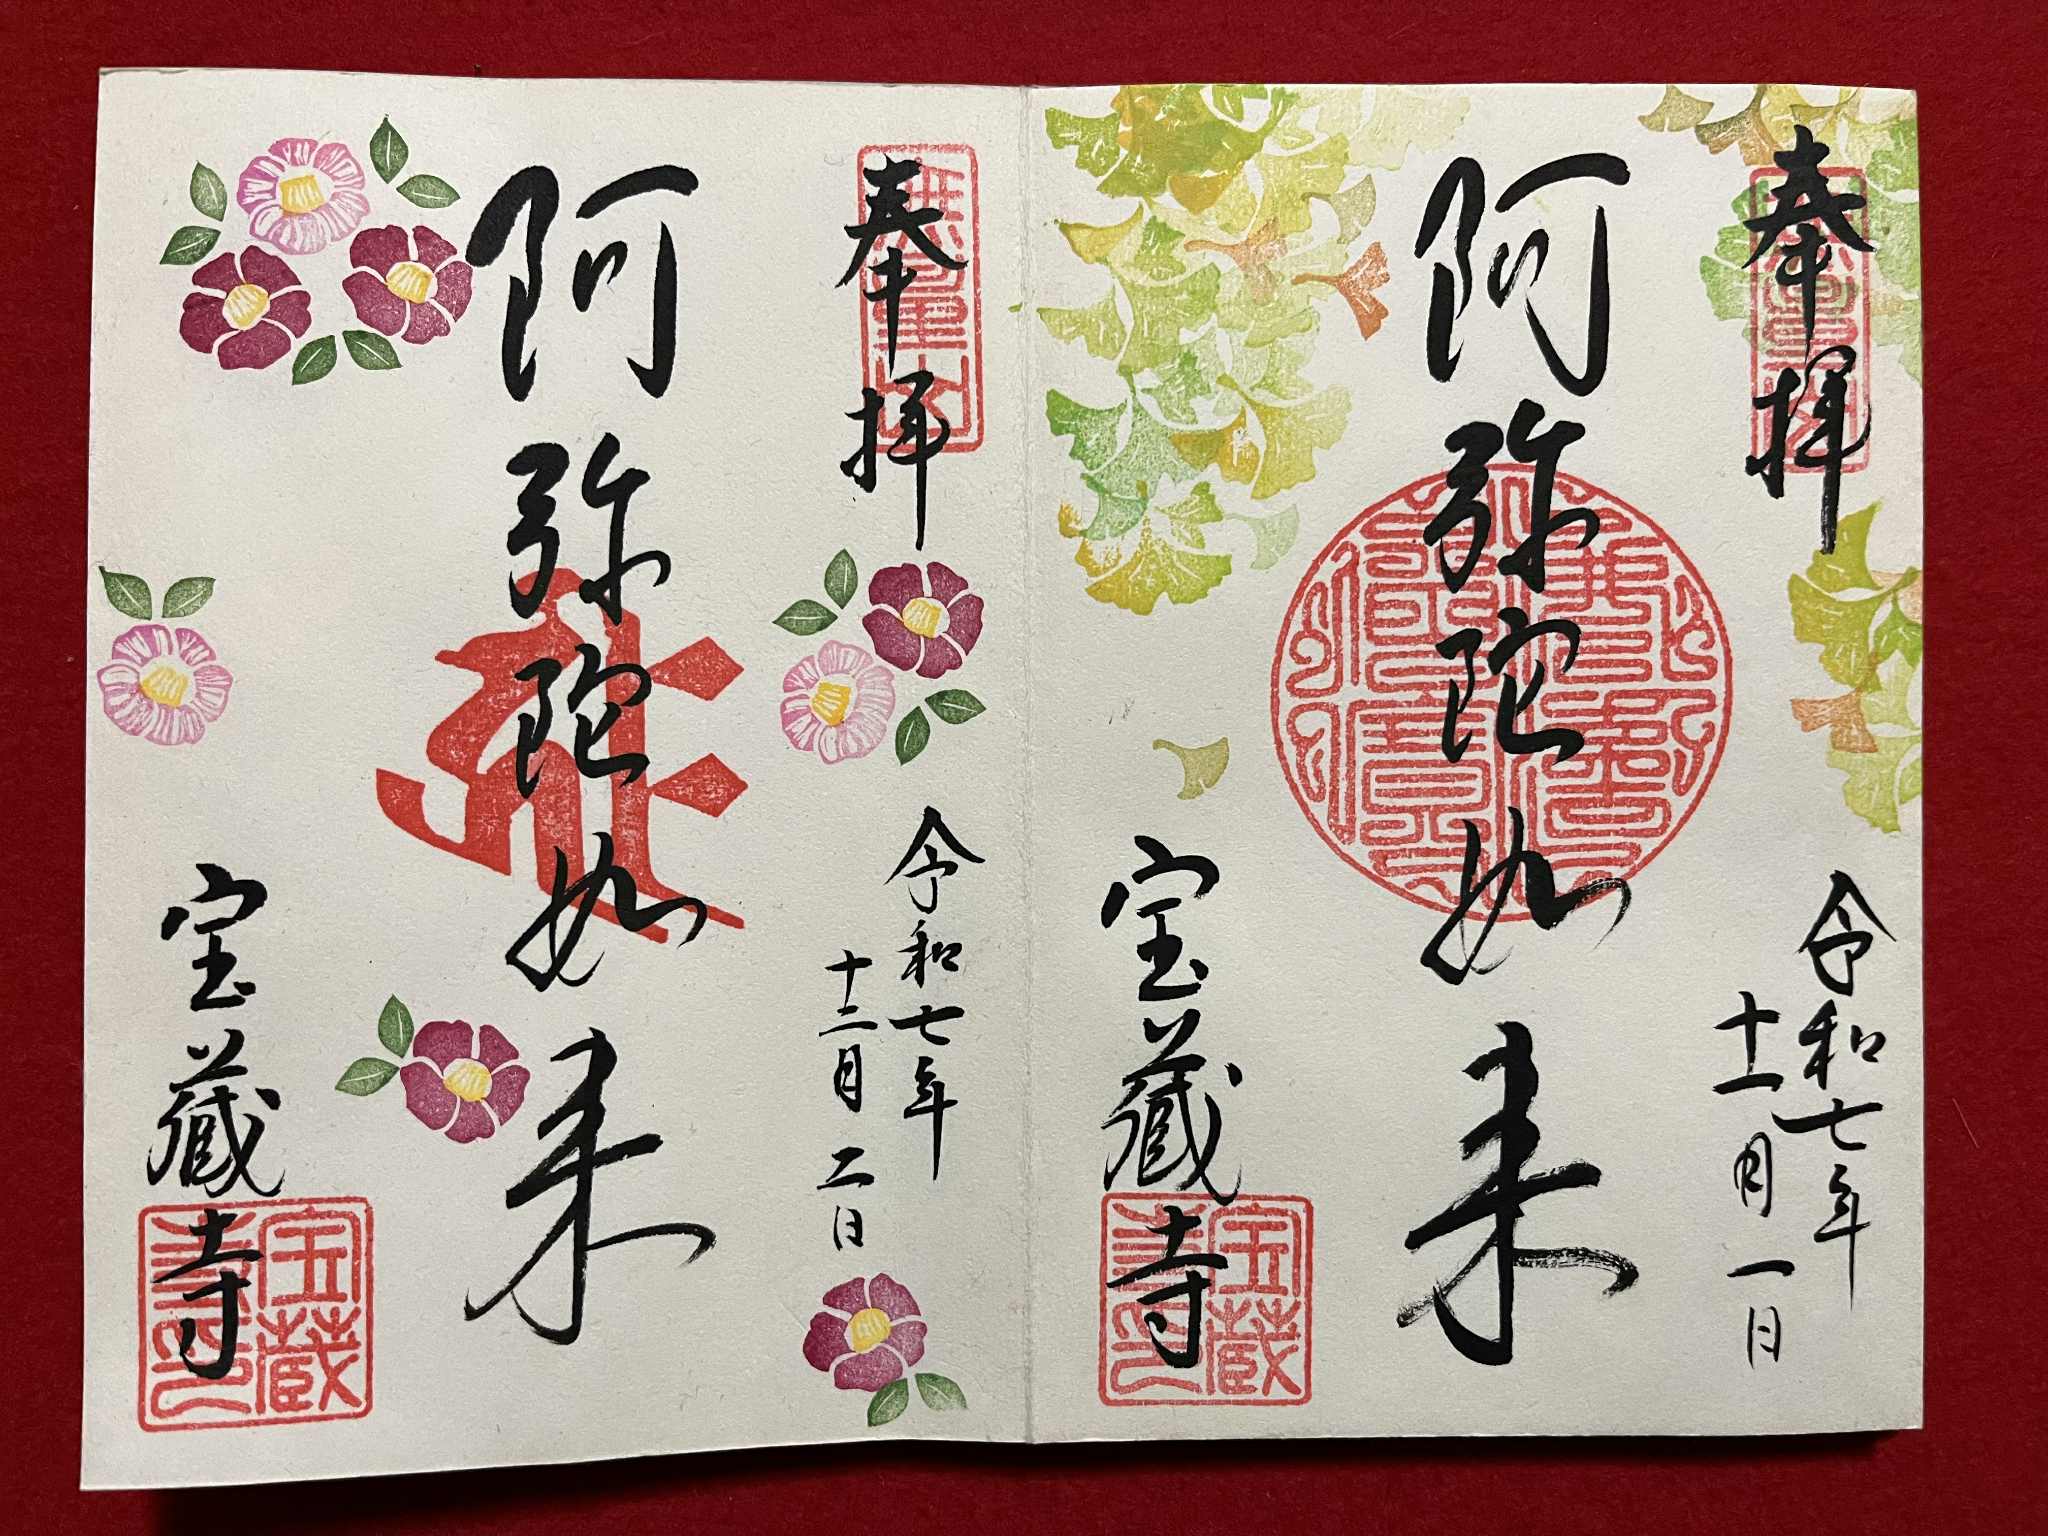 奉拝
令和七年
十一月一日
阿弥陀如来
宝蔵寺
宝蔵
寺印
奉拝
令和七年
十二月二日
阿弥陀如来
宝蔵寺
宝蔵
寺印